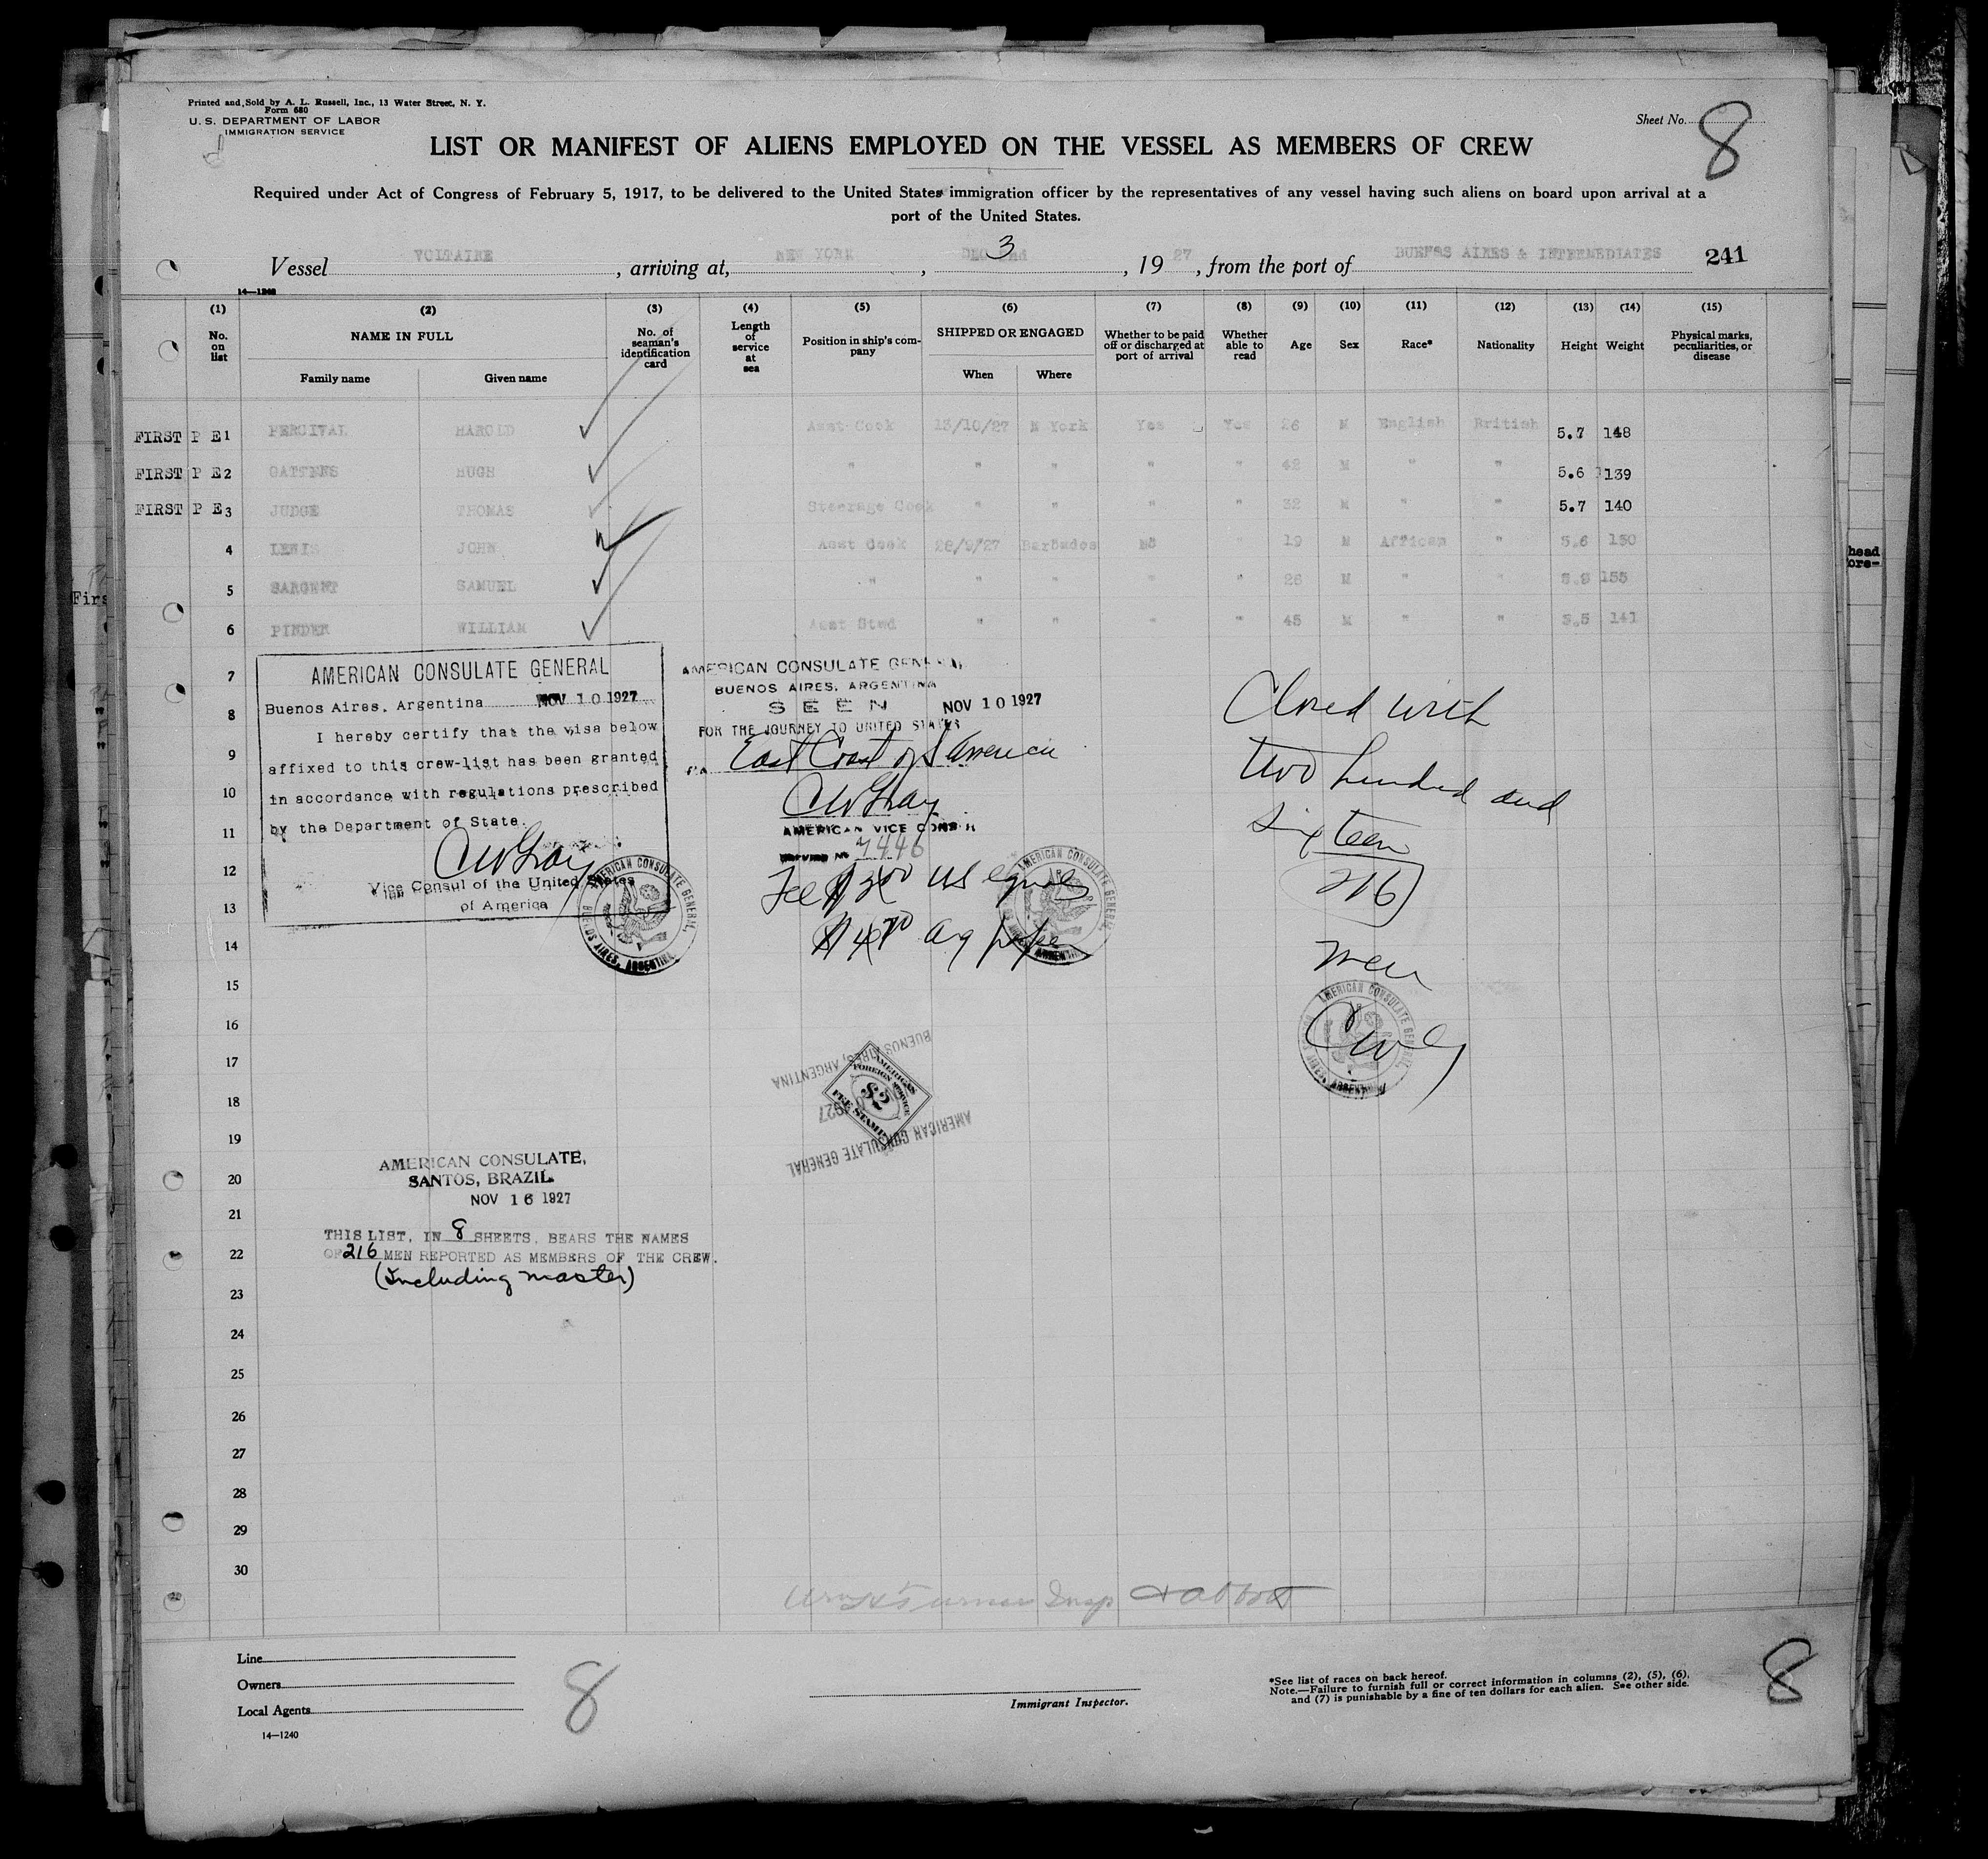 Printed and Sold by A. L. Russell, Inc., 13 Water Street, N. Y.
Form 680
U. S. DEPARTMENT OF LABOR
IMMIGRATION SERVICE
Sheet No. 8
LIST OR MANIFEST OF ALIENS EMPLOYED ON THE VESSEL AS MEMBERS OF CREW
Required under Act of Congress of February 5, 1917, to be delivered to the United States immigration officer by the representatives of any vessel having such aliens on board upon arrival at a
port of the United States.
Vessel VOLTAIRE, arriving at, NEW YORK, DEC 3, 1927, from the port of BUENOS AIRES & INTERMEDIATES 241
14—1240
(1) (2) (3) (4) (5) (6) (7) (8) (9) (10) (11) (12) (13) (14) (15)
No. on list
NAME IN FULL
Family name Given name
No. of seaman's identification card
Length of service at sea
Position in ship's company
SHIPPED OR ENGAGED
When Where
Whether to be paid off or discharged at port of arrival
Whether able to read
Age Sex Race* Nationality Height Weight
Physical marks, peculiarities, or disease
FIRST P E 1 PERCIVAL HAROLD Asst Cook 13/10/27 N York Yes Yes 26 M English British 5.7 148
FIRST P E 2 GATTENS HUGH " " " " " 42 M " " 5.6 139
FIRST P E 3 JUDGE THOMAS Steerage Cook " " " " 32 M " " 5.7 140
4 LEWIS JOHN Asst Cook 28/9/27 Barbados No " 19 M African " 5.6 150
5 SARGENT SAMUEL " " " " " 26 M " " 155
6 PINDER WILLIAM Asst Stwd " " " " 45 M " " 5.5 141
7
8
9
10
11
12
13
14
15
16
17
18
19
20
21
22
23
24
25
26
27
28
29
30
AMERICAN CONSULATE GENERAL
Buenos Aires, Argentina NOV 10 1927
I hereby certify that the visa below
affixed to this crew-list has been granted
in accordance with regulations prescribed
by the Department of State.
CW Gray
Vice Consul of the United States
of America
AMERICAN CONSULATE GENERAL, BUENOS AIRES, ARGENTINA
AMERICAN CONSULATE GENERAL
BUENOS AIRES, ARGENTINA
SEEN NOV 10 1927
FOR THE JOURNEY TO UNITED STATES
VIA East Coast of S America
CW Gray
AMERICAN VICE CONSUL
Service No 7446
Fee $2.00 US equals
arg paper
AMERICAN CONSULATE GENERAL, BUENOS AIRES, ARGENTINA
Closed with
two hundred and
sixteen
216
men
AMERICAN CONSULATE GENERAL, BUENOS AIRES, ARGENTINA
CWG
BUENOS AIRES, ARGENTINA
1927
AMERICAN CONSULATE GENERAL
AMERICAN
FOREIGN SERVICE
$2
FEE STAMP
AMERICAN CONSULATE,
SANTOS, BRAZIL.
NOV 16 1927
THIS LIST, IN 8 SHEETS, BEARS THE NAMES
OF 216 MEN REPORTED AS MEMBERS OF THE CREW.
(Including master)
Line
Owners
Local Agents
14—1240
8
Immigrant Inspector.
*See list of races on back hereof.
Note.—Failure to furnish full or correct information in columns (2), (5), (6),
and (7) is punishable by a fine of ten dollars for each alien. See other side.
8
Firs
head
ore-